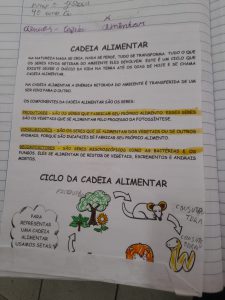 CADEIA ALIMENTAR
NA NATUREZA NADA SE CRIA, NADA SE PERDE, TUDO SE TRANSFORMA. TUDO O
QUE OS SERES VIVOS RETIRAM DO AMBIENTE ELES DEVOLVEM. ESTE É UM CICLO QUE
EXISTE DESDE O INÍCIO DA VIDA NA TERRA ATÉ OS DIAS DE HOJE E SE CHAMA
CADEIA ALIMENTAR.
NA CADEIA ALIMENTAR A ENERGIA RETIRADA DO AMBIENTE É TRANSFERIDA DE UM
SER VIVO PARA OUTRO.
OS COMPONENTES DA CADEIA ALIMENTAR SÃO OS SERES:
PRODUTORES - SÃO OS SERES QUE FABRICAM SEU PRÓPRIO ALIMENTO. ESSES SERES
SÃO OS VEGETAIS QUE SE ALIMENTAM PELO PROCESSO DA FOTOSSÍNTESE.
CONSUMIDORES - SÃO OS SERES QUE SE ALIMENTAM DOS VEGETAIS OU DE OUTROS
ANIMAIS, PORQUE SÃO INCAPAZES DE FABRICAR SEU PRÓPRIO ALIMENTO.
DECOMPOSITORES - SÃO SERES MICROSCÓPICOS COMO AS BACTÉRIAS E OS
FUNGOS. ELES SE ALIMENTAM DE RESTOS DE VEGETAIS, EXCREMENTOS E ANIMAIS
MORTOS.
CICLO DA CADEIA ALIMENTAR
PARA
REPRESENTAR
UMA CADEIA
ALIMENTAR
USAMOS SETAS: